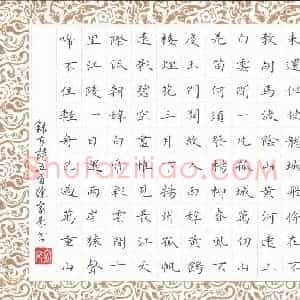 未還但使龍城飛將在不
教胡馬度陰山黃河遠上
白雲間一片孤城萬仞山
羌笛何須怨楊柳春風不
度玉門關故人西辭黃鶴
樓煙花三月下揚州孤帆
遠影碧空盡惟見長江天
際流朝辭白帝彩雲間千
里江陵一日還兩岸猿聲
啼不住輕舟已過萬重山
錄古詩
Shufaziliao.com